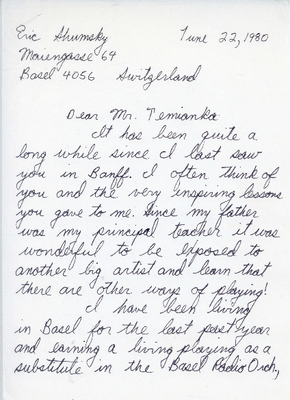 Eric Shumsky June 22, 1980
Maiengasse 64
Basel 4056 Switzerland
Dear Mr. Temianka
It has been quite a
long while since I last saw
you in Banff. I often think of
you and the very inspiring lessons
you gave to me. Since my father
was my principal teacher it was
wonderful to be exposed to
another big artist and learn that
there are other ways of playing!
I have been living
in Basel for the last past year
and earning a living playing as a
substitute in the Basel Radio Orch,